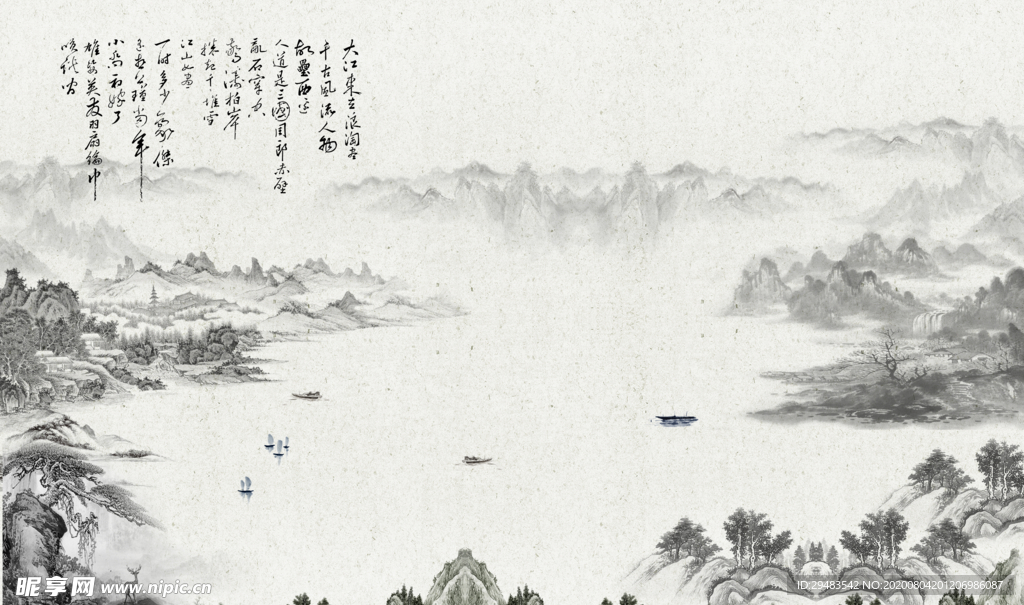 大江東去浪淘盡
千古風流人物
故壘西邊
人道是三國周郎赤壁
亂石穿空
驚濤拍岸
捲起千堆雪
江山如畫
一時多少豪傑
遙想公瑾當年
小喬初嫁了
雄姿英發羽扇綸巾
談笑間
昵享网 www.nipic.cn
ID:29483542 NO:20200804201206986087